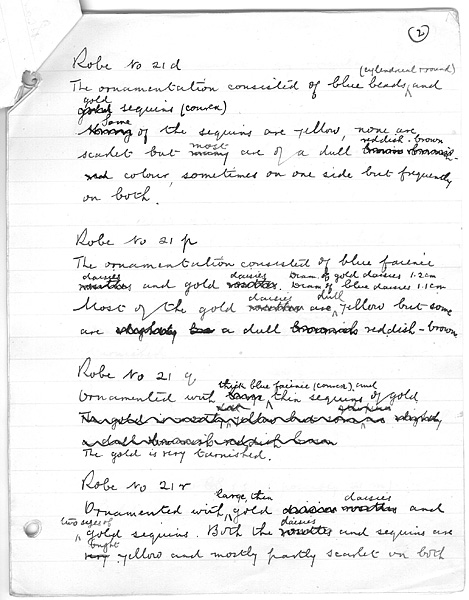 (2)
Robe No 21 d
(cylendrical & round)
The ornamentation consisted of blue beads, and
gold sequins (convex)
Some of the sequins are yellow, none are
scarlet but most are of a dull reddish-brown
colour, sometimes on one side but frequently
on both.
Robe No 21 p
The ornamentation consisted of blue faience
daisies and gold daisies. Diam. of gold daisies 1.2cm
Diam of blue daisies 1.1cm
Most of the gold daisies are dull yellow but some
are a dull reddish-brown
Robe No 21 q
thick blue faience (convex) and
Ornamented with thin sequins of gold
The gold is very tarnished.
Robe No 21 r
Ornamented with large, thin gold daisies and
two sizes of gold sequins. Both the daisies and sequins are
bright yellow and mostly partly scarlet on both